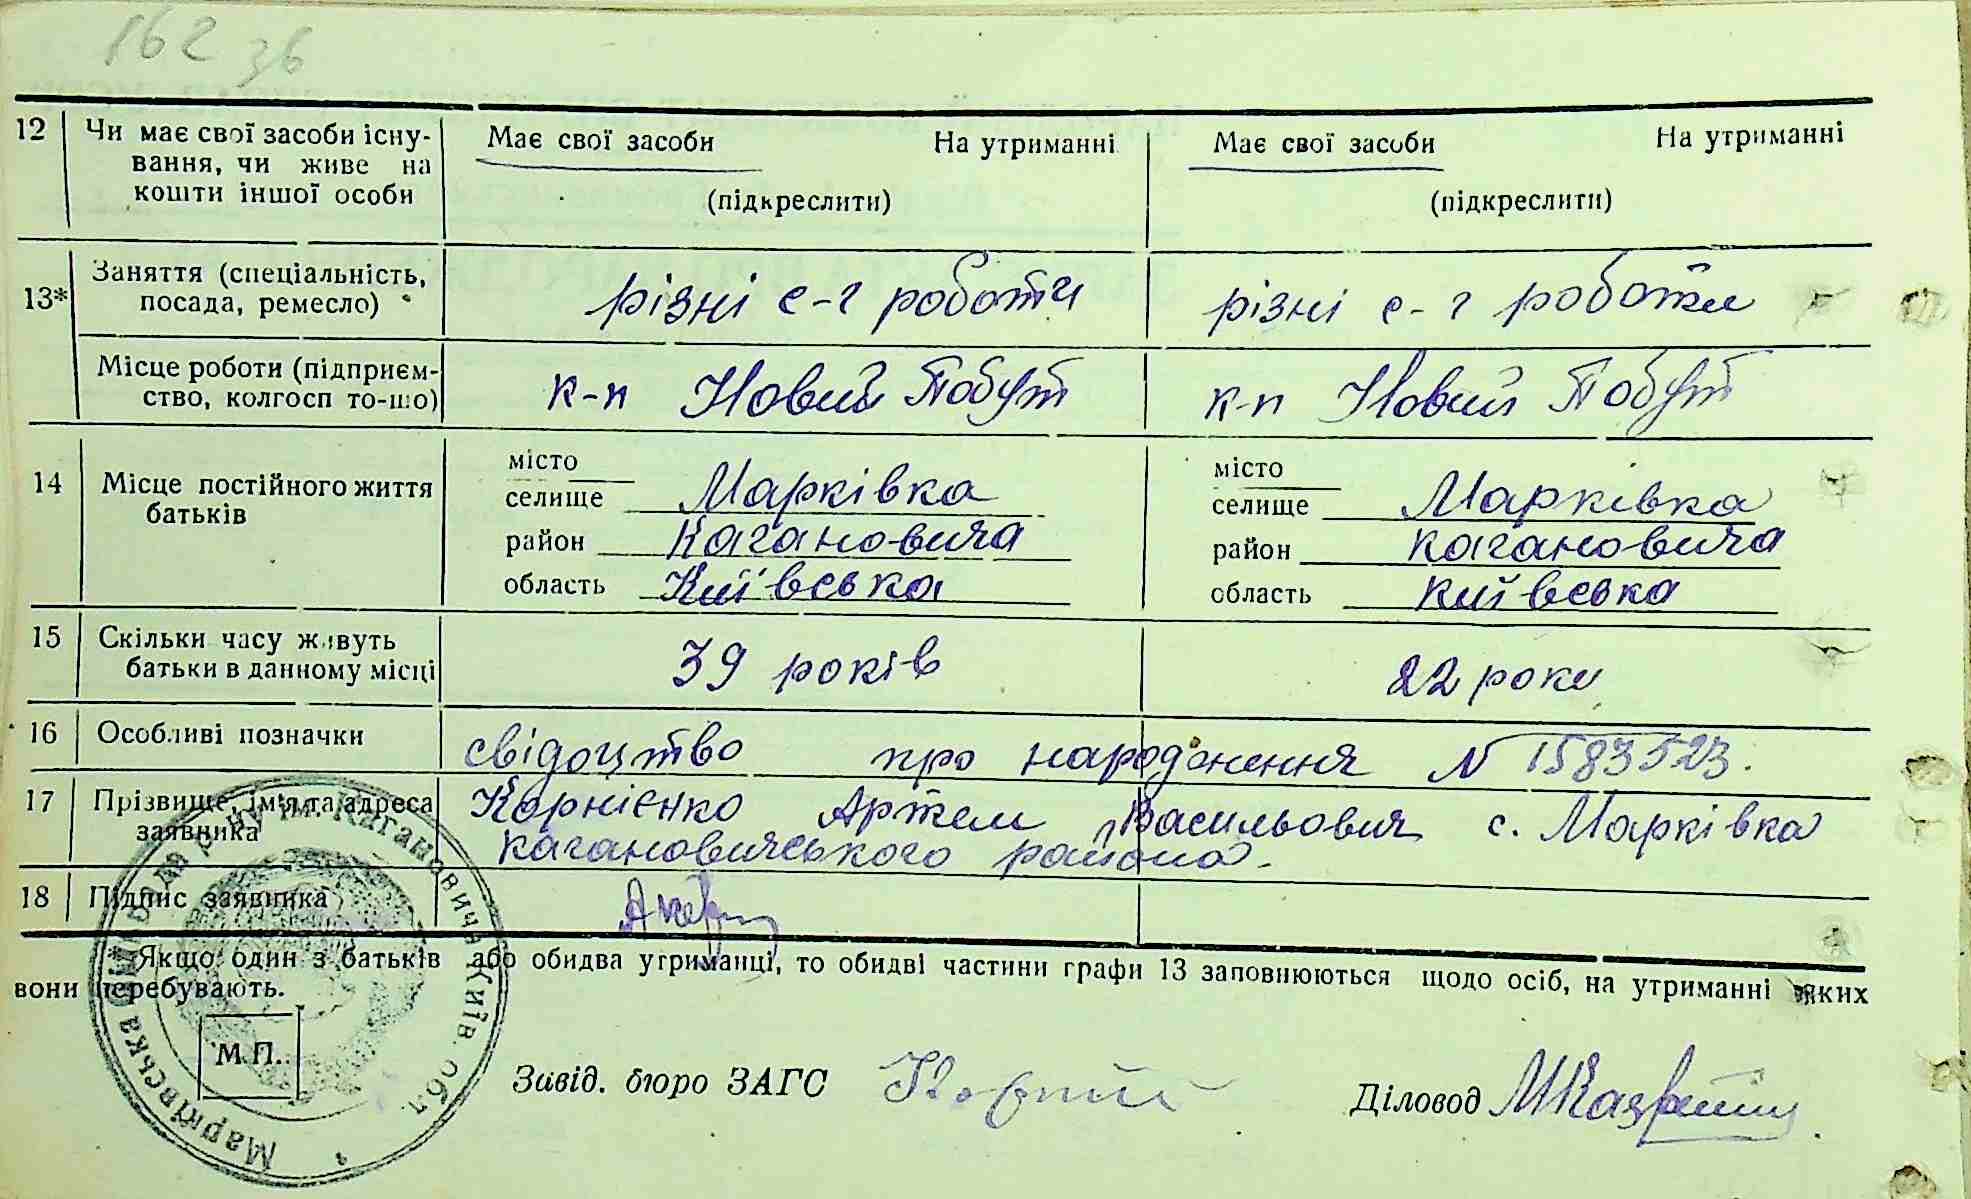 162 зв
12 Чи має свої засоби існу- Має свої засоби На утриманні Має свої засоби На утриманні
вання, чи живе на
кошти іншої особи (підкреслити) (підкреслити)
13* Заняття (спеціальність,
посада, ремесло) різні с-г роботи різні с-г роботи
Місце роботи (підприєм-
ство, колгосп то-що) к-п Новий Побут к-п Новий Побут
14 Місце постійного життя
батьків
місто місто
селище Марківка селище Марківка
район Кагановича район Кагановича
область Київська область Київська
15 Скільки часу живуть
батьки в данному місці 39 років 22 роки
16 Особливі позначки свідоцтво про народження N 1583523.
17 Прізвище, ім'я та адреса Корнієнко Артем Васильович с. Марківка
заявника Кагановичського района.
18 Підпис заявника
* Якщо один з батьків або обидва утриманці, то обидві частини графи 13 заповнюються щодо осіб, на утриманні яких
вони перебувають.
М.П.
Завід. бюро ЗАГС
Діловод
Марківська сільрада р-ну ім. Кагановича Київ. обл.